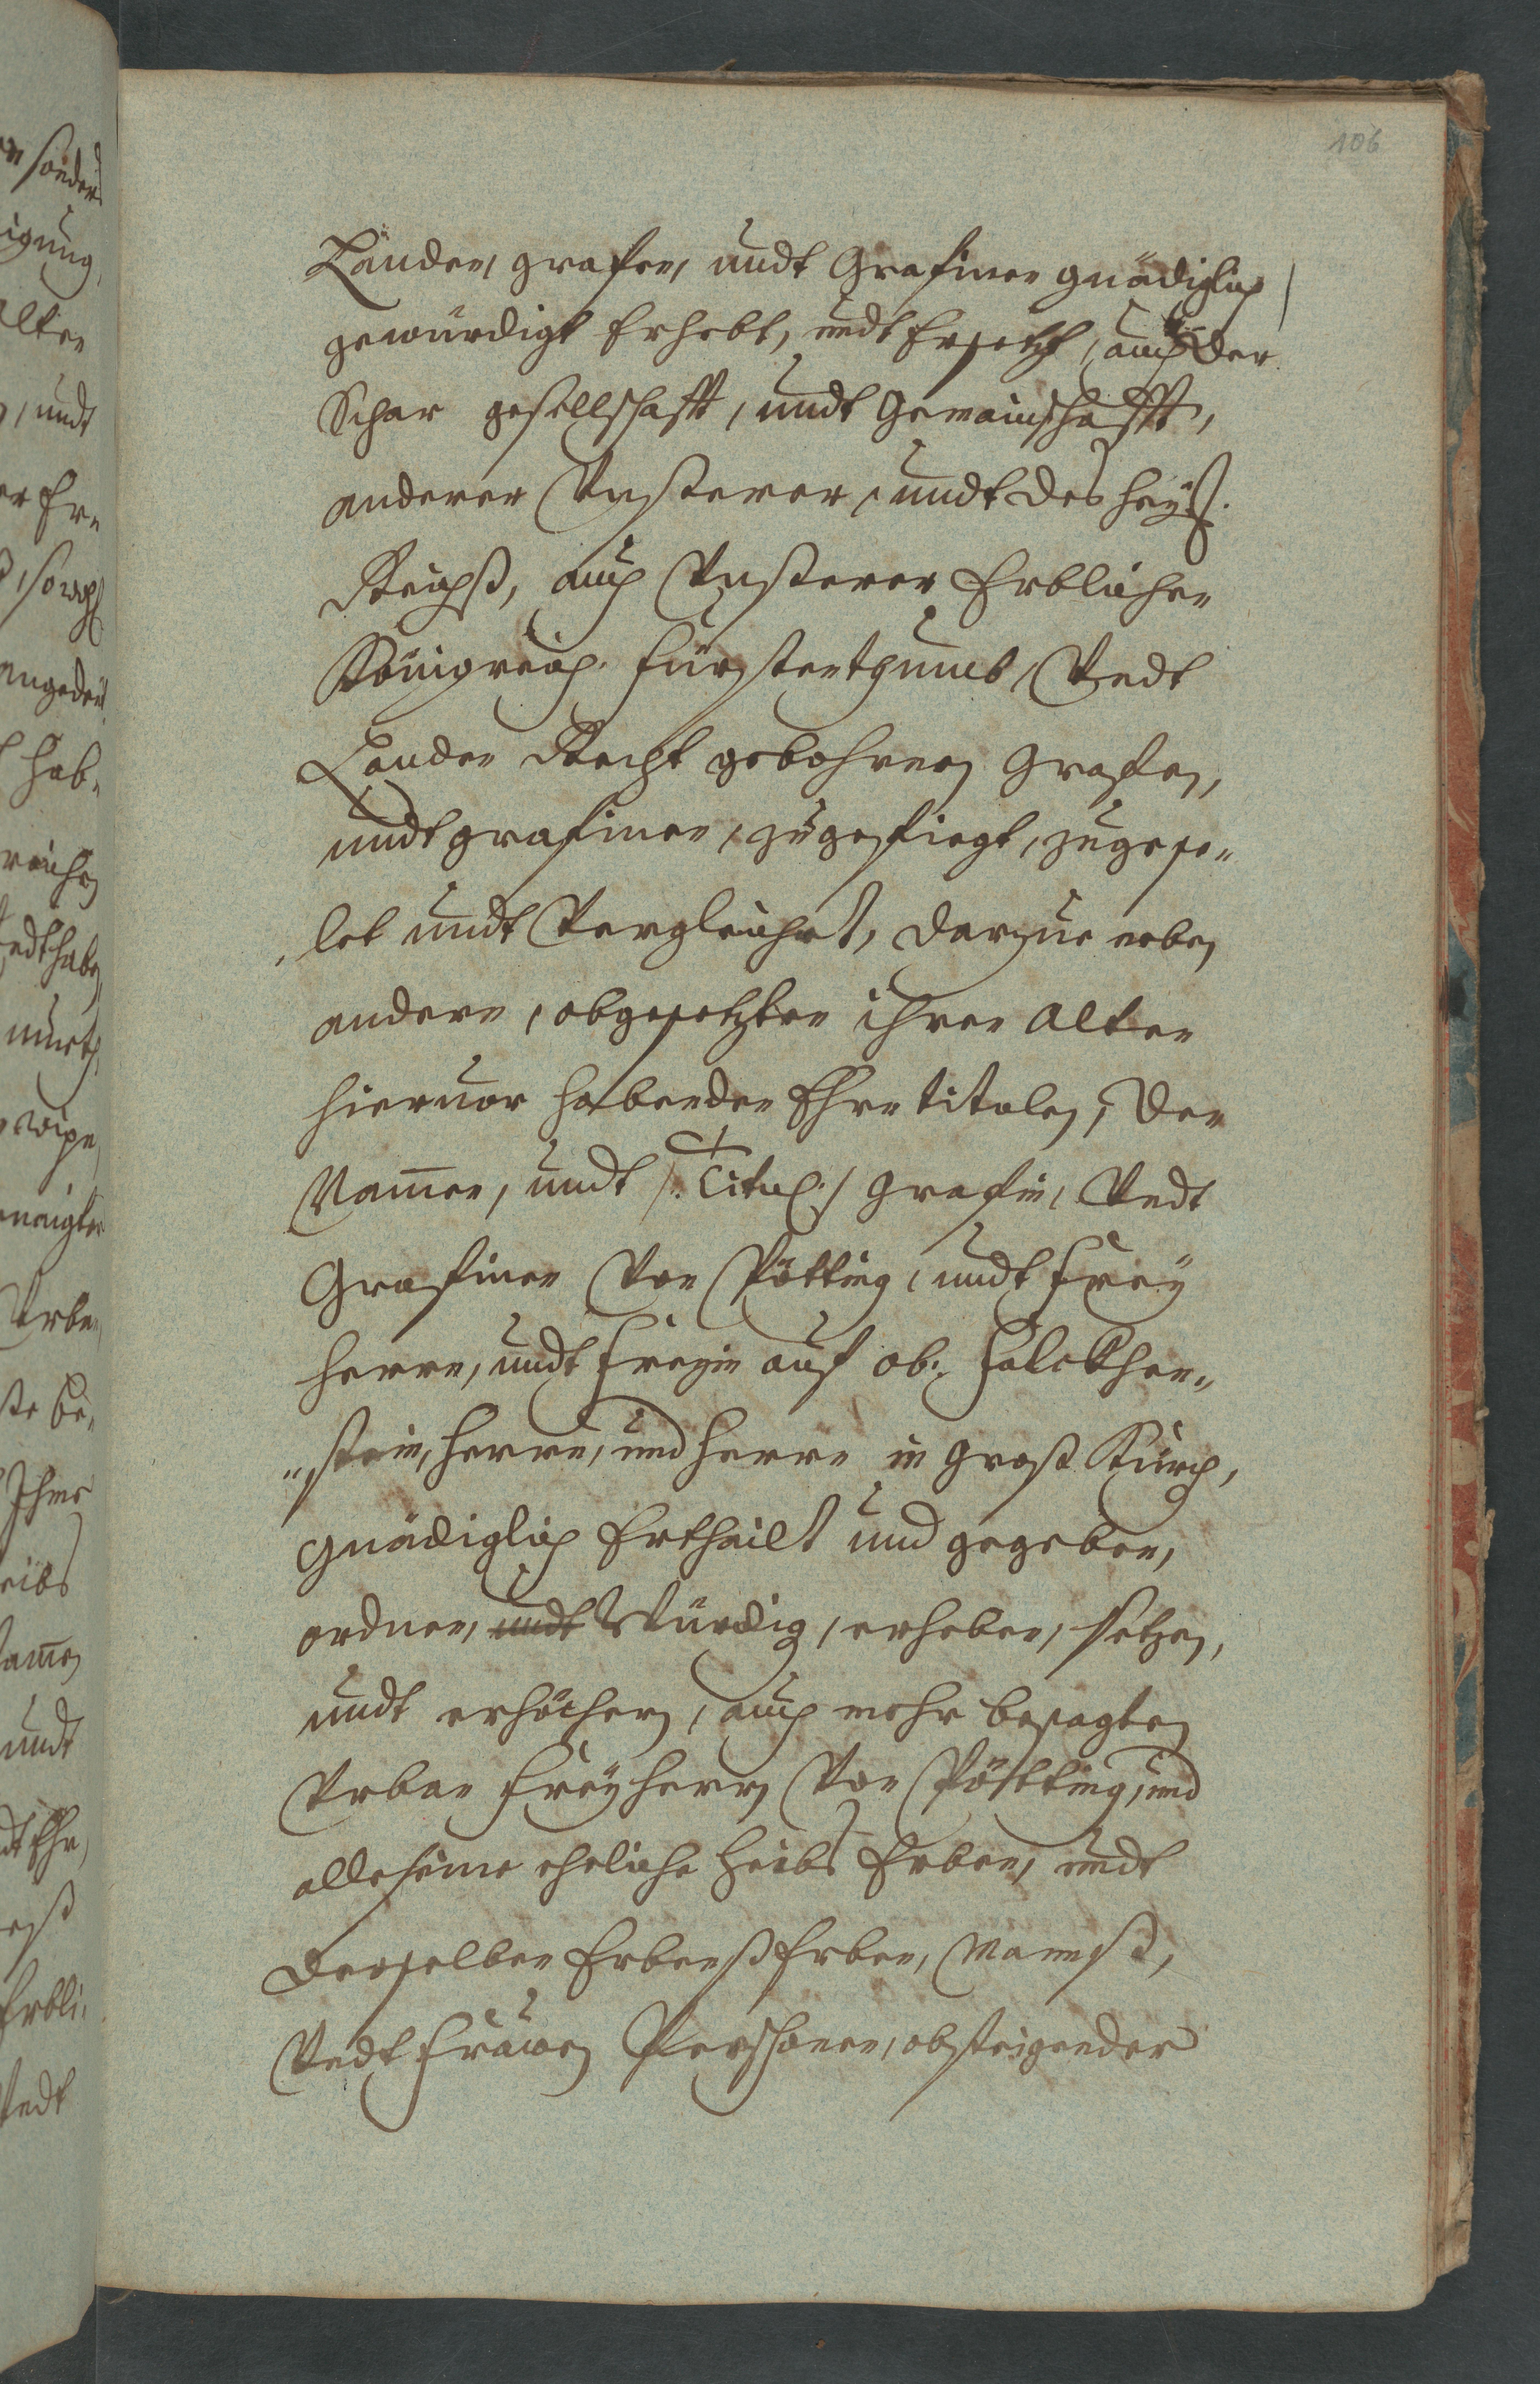 106
Länder, grafen, undt Grafinen gnädiglich
gewürdigt Erhebt, undt Ersetzt, auch der
Schar gesellschafft, undt Gemainschafft,
anderer Vnßerer, undt des heÿl:
Reichß, auch Vnßerer Erblichen
Königreich. Fürstenthumb, Vndt
Länder Recht gebohrnen Grafen,
undt grafinen, zugefiegt, zugese„
let undt Vergleichet, darzue neben
andern, obgesetzten ihren alten
hieruor habenden Ehrn titulen, den
Namen, undt /: Titul :/ Grafin, Vndt
Grafinen Von Pötting, undt Freÿ
herrn, undt Freyin auf ob: Falckhen„
„stein, herrn, und herrn in groß Kürch,
gnädiglich Ertheilt und gegeben,
ordnen, undt Würdig, erheben, setzen,
undt erhöchen, auch mehr besagten
Vrban Freÿherrn Von Pötting, und
alle seine eheliche Leibs Erben, undt
derselben Erbenß Erben, Manß,
Vndt Frauen Persohnen, absteigender